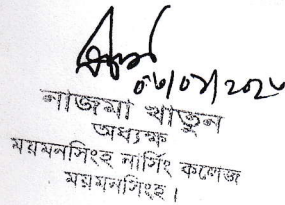 ০৬/০৭/২০২৬
নাজমা খাতুন
অধ্যক্ষ
ময়মনসিংহ নার্সিং কলেজ
ময়মনসিংহ।